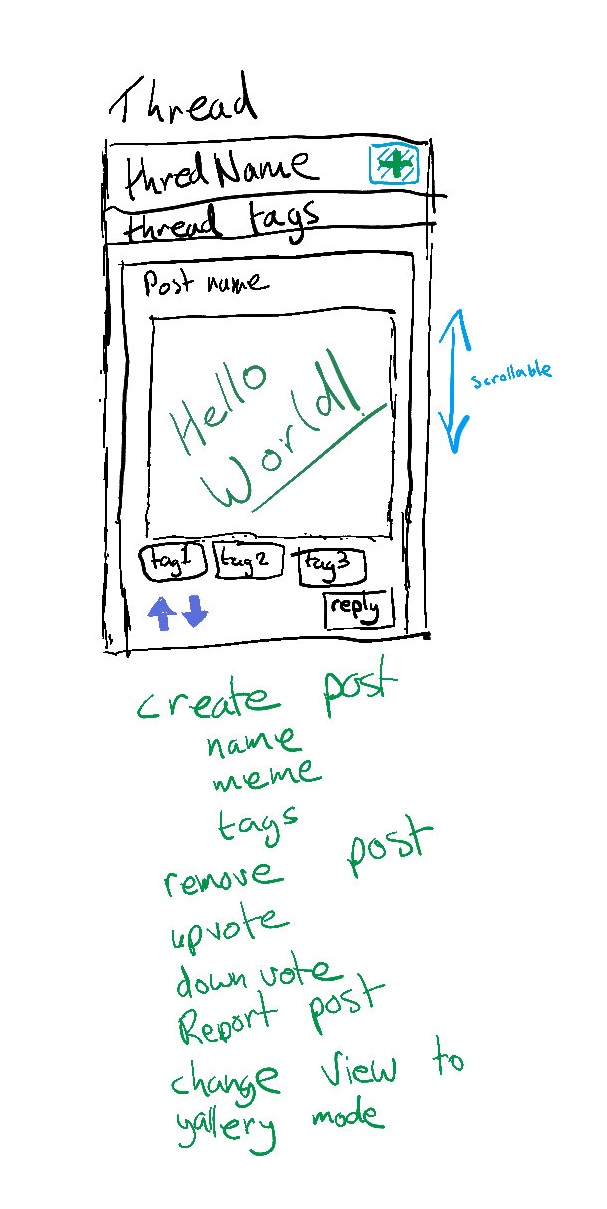 Thread
thred Name
thread tags
Post name
Hello
World!
scrollable
tag1 tag2 tag3
reply
create post
name
meme
tags
remove post
upvote
down vote
Report post
change view to
gallery mode